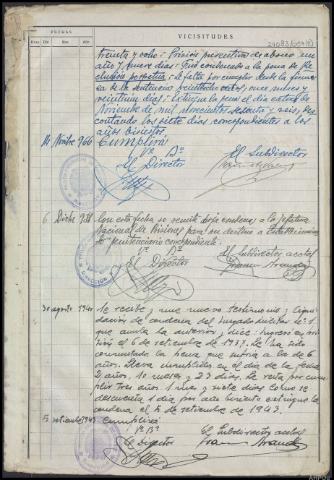 FECHAS
VICISTUDES
Día
Mes
Año
treinta y ocho = Prisión preventiva de abono un
año y nueve días = Fué condenado a la pena de Re
clusión perpetua = Le falta por cumplir desde la firmeza
de la sentencia veintiocho años, once meses y
veintiun días: Extingue la pena el día catorce de
Noviembre de mil novecientos sesenta y seis des
contando los siete días correspondientes a los
años bisiestos
14 Novbre 966 Cumplirá
Vº Bº
El Director
El Subdirector
6 Dicbre 938 Con esta fecha se remite a la Jefatura
Nacional de Prisiones para su destino a
penitenciario correspondiente
Vº Bº
El Director
El Subdirector acctal
30 agosto 1940 Se recibe nuevo testimonio y liqui
dación de condena del Juzgado militar nº 1
que anula la anterior, y dice: Ingresó en pri
sión el 6 de setiembre de 1937. Le ha sido
conmutada la pena que sufría a la de 6
años. Lleva cumplidos en el día de la fecha
2 años, 11 meses y 23 días. Le resta por cum
plir tres años, 1 mes y siete días como se
descuenta 1 día por año bisiesto extingue la
condena el 5 de setiembre de 1943.
5 setiembre 1943 Cumplirá
Vº Bº
El Director
El Subdirector acctal